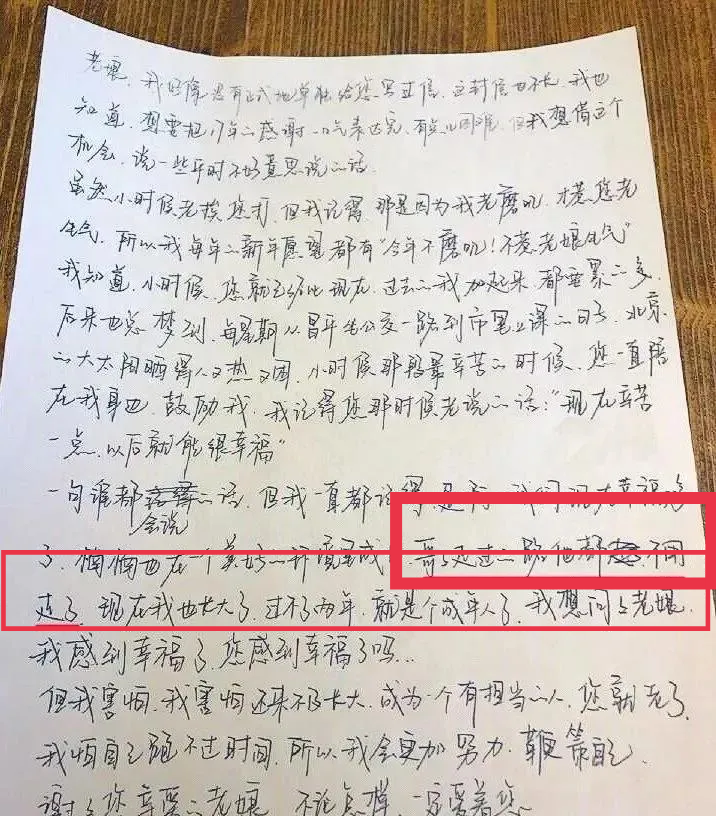 老娘，我好像没有正式地单独给您写过信，这封信也不长，我也
知道，想要把17年的感谢一口气表达完，有点儿困难，但我想借这个
机会，说一些平时不好意思说的话.
虽然小时候老挨您打，但我记得，那是因为我老磨叽，才惹您老
生气，所以我每年的新年愿望都有“今年不磨叽！不惹老娘生气”
我知道，小时候，您就已经比现在，过去的我加起来，都要累的多.
后来也总梦到，每星期从昌平坐公交一路到市里上课的日子，北京
的大太阳晒得人又热又困，小时候那段最辛苦的时候，您一直陪
在我身边，鼓励我，我记得您那时候老说的话：“现在辛苦
一点，以后就能很幸福”
一句谁都会说的话，但我一直都记得，是的，我们现在幸福
了，也在一个美好的环境里成 哥哥走过的路他都不用
走了，现在我也长大了，过不了两年，就是个成年人了，我想问问老娘，
我感到幸福了，您感到幸福了吗…
但我害怕，我害怕还来不及长大，成为一个有担当的人，您就老了，
我怕自己跑不过时间，所以我会更加努力，鞭策自己.
谢谢您，亲爱的老娘，不论怎样，一定爱着您